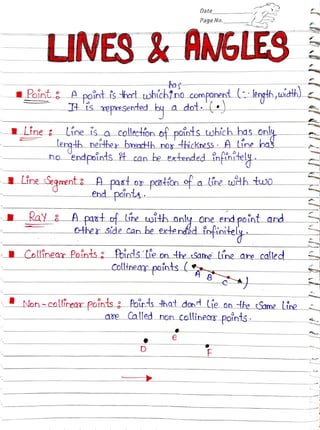 Date
Page No.
LINES & ANGLES
has
Point : A point is that which no component (∵ length, width)
It is represented by a dot. (•)
Line : Line is a collection of points which has only
length neither breadth nor thickness. A line has
no endpoints it can be extended infinitely.
Line Segment : A part or portion of a line with two
end points.
Ray : A part of line with only one end point and
other side can be extended infinitely.
Collinear Points : Points lie on the same line are called
collinear points (
A B C )
Non-collinear points : Points that don't lie on the same line
are called non collinear points.
e
D F